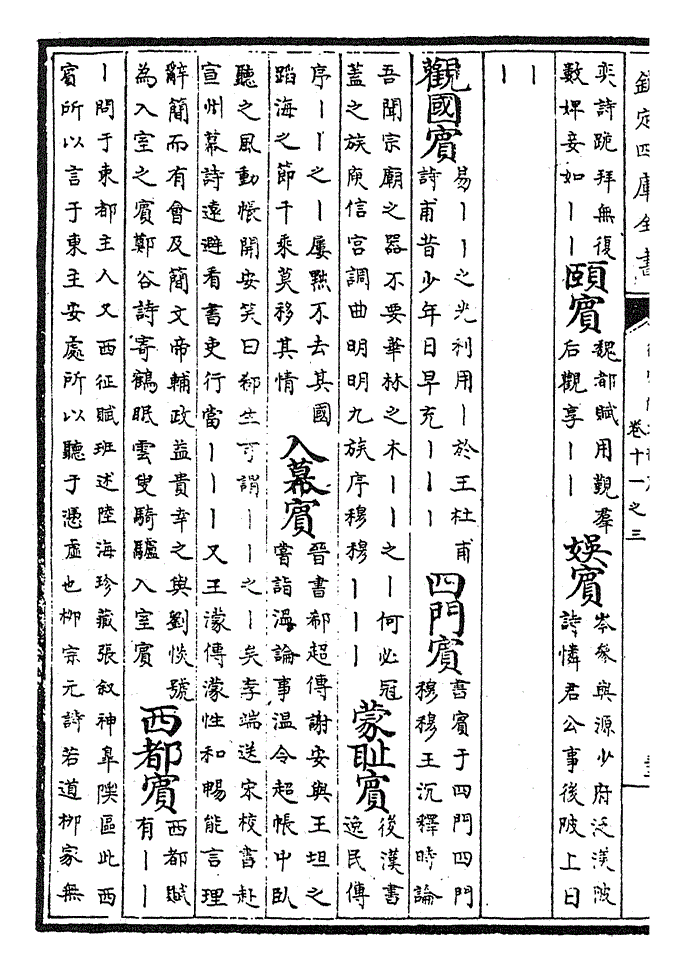 欽定四庫全書
卷十一之三
奕詩跪拜無復
數婢妾如丨丨
頤賓
魏都賦用觀羣
后觀享丨丨
娛賓
岑參與源少府泛渼陂
詩憐君公事後陂上日
丨
丨
觀國賓
易丨丨之光利用丨於王杜甫
詩甫昔少年日早充丨丨丨
四門賓
書賓于四門四門
穆穆王沉釋時論
吾聞宗廟之器不要華林之木丨丨之丨何必冠
蓋之族庾信宮調曲明明九族序穆穆丨丨丨
蒙耻賓
後漢書
逸民傳
序丨丨之丨屢黜不去其國
蹈海之節千乘莫移其情
入幕賓
晉書郗超傳謝安與王坦之
嘗詣溫論事溫令超帳中臥
聽之風動帳開安笑曰郗生可謂丨丨之丨矣李端送宋校書赴
宣州幕詩遠避看書吏行當丨丨丨又王濛傳濛性和暢能言理
辭簡而有會及簡文帝輔政益貴幸之與劉惔號
為入室之賓鄭谷詩寄鶴眠雲叟騎驢入室賓
西都賓
西都賦
有丨丨
丨問于東都主人又西征賦班述陸海珍藏張叙神皐隩區此西
賓所以言于東主安處所以聽于憑虛也柳宗元詩若道柳家無